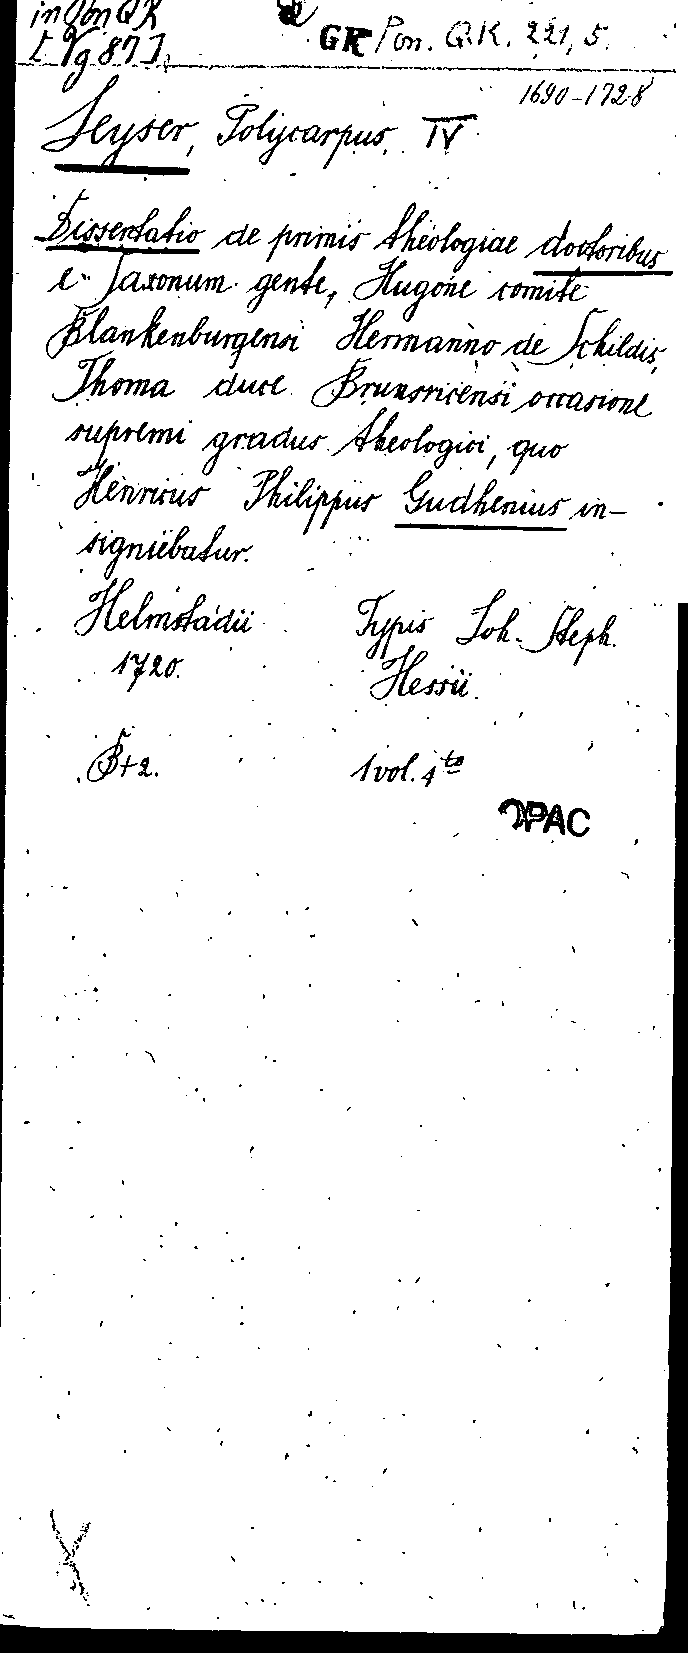 in Pon QK
GK Pon. Q.K. 221, 5.
[Yg 87].
1690-1728
Leyser, Polycarpus, IV
Dissertatio de primis theologiae doctoribus
e Saxonum gente, Hugone comite
Blankenburgensi Hermanno de Schildis,
Thoma duce Brunsvicensi occasione
supremi gradus theologici, quo
Henricus Philippus Gudhenius in-
signiebatur.
Helmstadii Typis Joh. Steph.
1720. Hessii.
B+2. 1 vol. 4to
OPAC